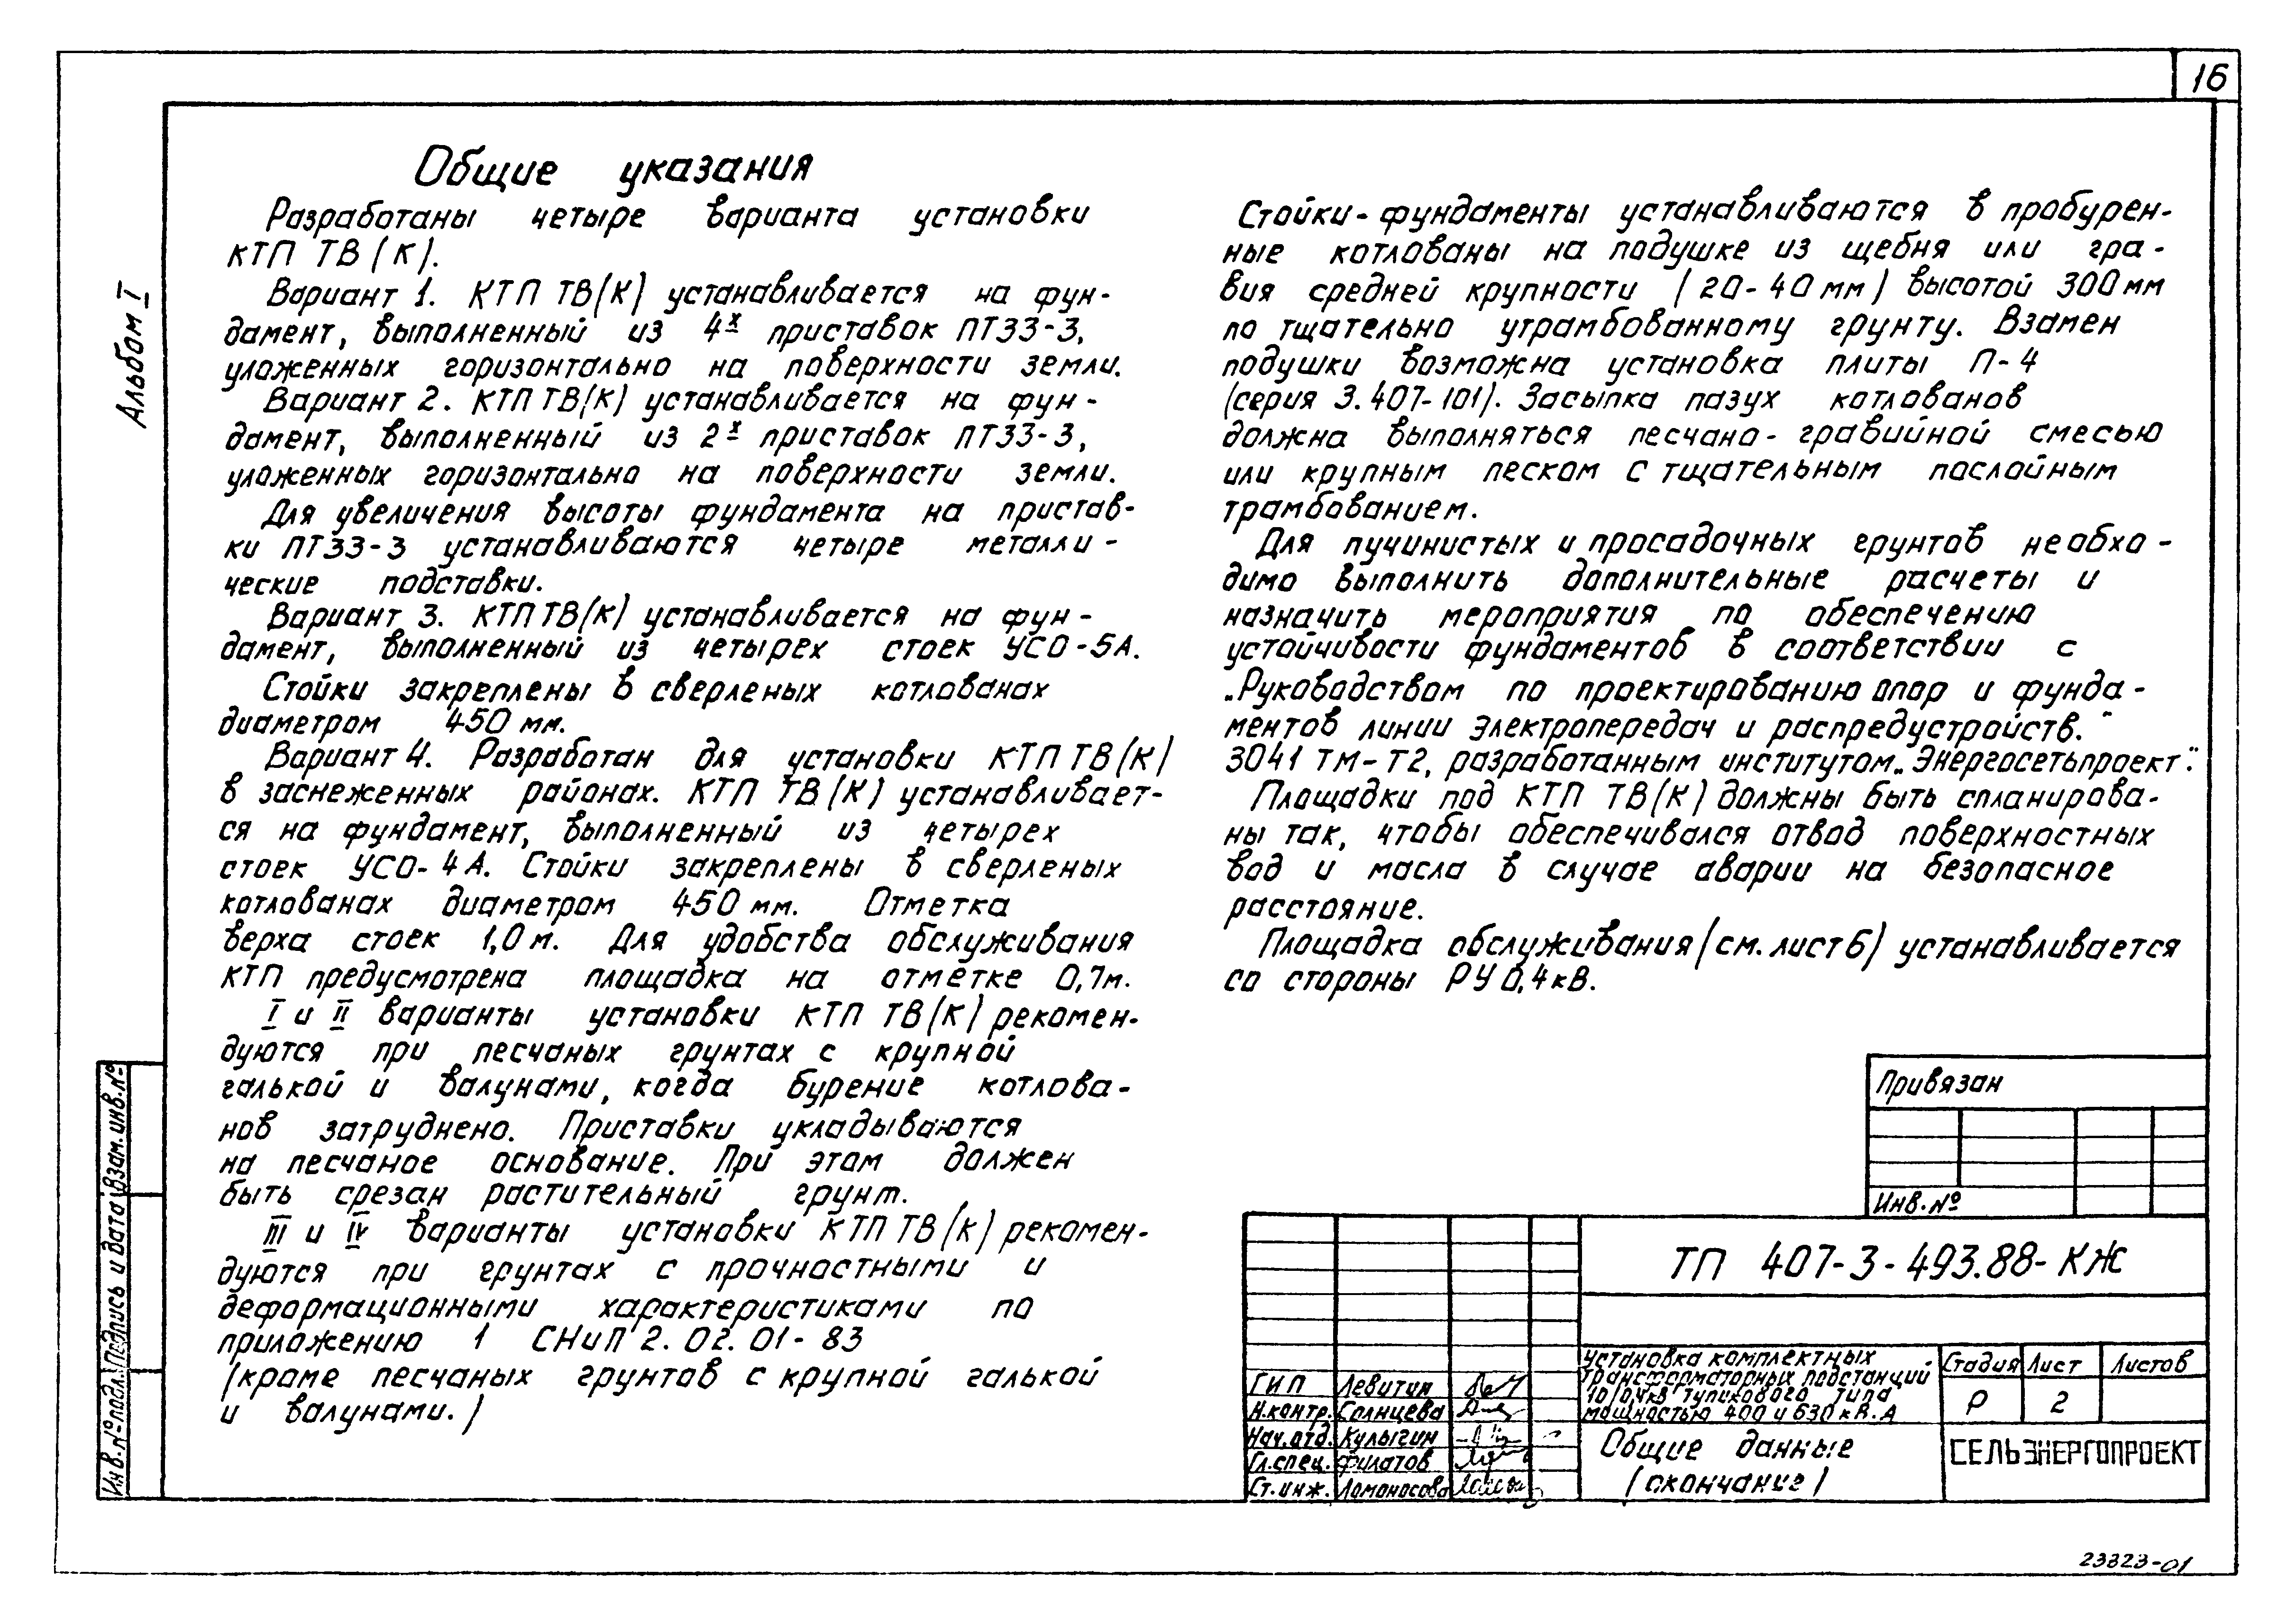 16
Альбом I
Общие указания
Разработаны четыре варианта установки
КТП ТВ(К).
Вариант 1. КТП ТВ(К) устанавливается на фун-
дамент, выполненный из 4х приставок ПТ33-3,
уложенных горизонтально на поверхности земли.
Вариант 2. КТП ТВ(К) устанавливается на фун-
дамент, выполненный из 2х приставок ПТ33-3,
уложенных горизонтально на поверхности земли.
Для увеличения высоты фундамента на пристав-
ки ПТ33-3 устанавливаются четыре металли-
ческие подставки.
Вариант 3. КТП ТВ(К) устанавливается на фун-
дамент, выполненный из четырех стоек УСО-5А.
Стойки закреплены в сверленых котлованах
диаметром 450 мм.
Вариант 4. Разработан для установки КТП ТВ(К)
в заснеженных районах. КТП ТВ(К) устанавливает-
ся на фундамент, выполненный из четырех
стоек УСО-4А. Стойки закреплены в сверленых
котлованах диаметром 450 мм. Отметка
верха стоек 1,0 м. Для удобства обслуживания
КТП предусмотрена площадка на отметке 0,7м.
I и II варианты установки КТП ТВ(К) рекомен-
дуются при песчаных грунтах с крупной
галькой и валунами, когда бурение котлова-
нов затруднено. Приставки укладываются
на песчаное основание. При этом должен
быть срезан растительный грунт.
III и IV варианты установки КТП ТВ(К) рекомен-
дуются при грунтах с прочностными и
деформационными характеристиками по
приложению 1 СНиП 2.02.01-83
(кроме песчаных грунтов с крупной галькой
и валунами.)
Стойки-фундаменты устанавливаются в пробурен-
ные котлованы на подушке из щебня или гра-
вия средней крупности (20-40мм) высотой 300мм
по тщательно утрамбованному грунту. Взамен
подушки возможна установка плиты П-4
(серия 3.407-101). Засыпка пазух котлованов
должна выполняться песчано-гравийной смесью
или крупным песком с тщательным послойным
трамбованием.
Для пучинистых и просадочных грунтов необхо-
димо выполнить дополнительные расчеты и
назначить мероприятия по обеспечению
устойчивости фундаментов в соответствии с
„Руководством по проектированию опор и фунда-
ментов линии электропередач и распредустройств.“
3041 ТМ-Т2, разработанным институтом „Энергосетьпроект“.
Площадки под КТП ТВ(К) должны быть спланирова-
ны так, чтобы обеспечивался отвод поверхностных
вод и масла в случае аварии на безопасное
расстояние.
Площадка обслуживания (см. лист 6) устанавливается
со стороны РУ 0,4кВ.
Привязан
Инв.№
ТП 407-3-493.88-КЖ
Установка комплектных
трансформаторных подстанций
10/0,4кВ тупикового типа
мощностью 400 и 630 кВ.А
Стадия Лист Листов
Р 2
Общие данные
(окончание)
СЕЛЬЭНЕРГОПРОЕКТ
ГИП Левитин
Н.контр. Солнцева
Нач.отд. Кулыгин
Гл.спец. Филатов
Ст.инж. Ломоносова
Инв.№подл. Подпись и дата Взам.инв.№
23323-01